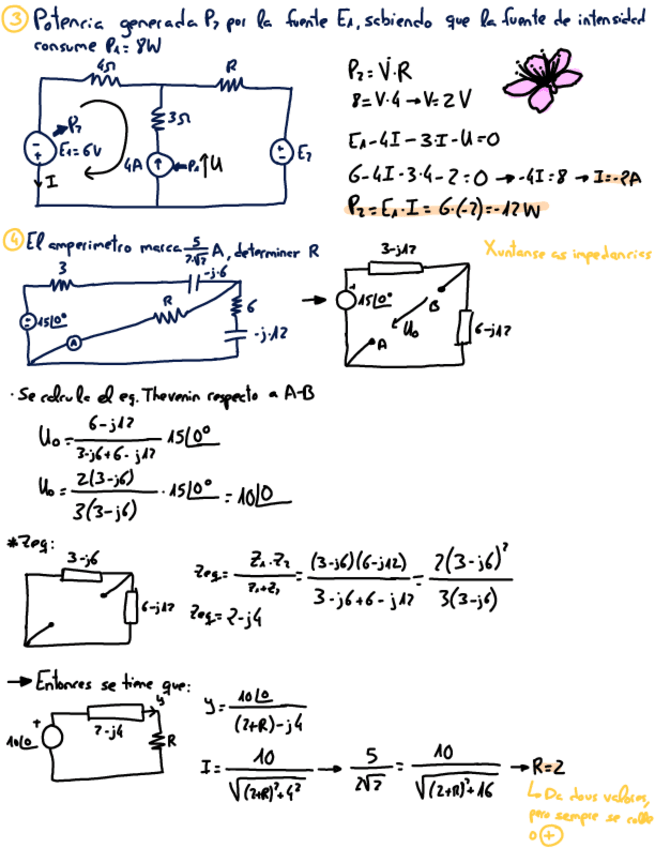 ③ Potencia generada P₂ por la fuente E₁, sabiendo que la fuente de intensidad
consume P₁ = 8W
4Ω
R
3Ω
P₂
E₁=6V
I
4A
U
E₂
P₂ = V·R
8 = V·4 → V = 2V
E₁ - 4I - 3·I - U = 0
6 - 4I - 3·4 - 2 = 0 → -4I = 8 → I = -2A
P₂ = E₁·I = 6·(-2) = -12W
④ El amperimetro marca 5/2√2 A, determiner R
3
-j·6
R
6
-j·12
15∠0°
A
→
3-j12
15∠0°
B
U₀
A
6-j12
Xuntanse as impedancias
· Se calcula el eq. Thevenin respecto a A-B
U₀ = (6-j12)/(3-j6+6-j12) 15∠0°
U₀ = 2(3-j6)/3(3-j6) · 15∠0° = 10∠0
* Zeq:
3-j6
6-j12
Zeq = Z₁·Z₂/(Z₁+Z₂) = (3-j6)(6-j12)/(3-j6+6-j12) = 2(3-j6)²/3(3-j6)
Zeq = 2-j4
→ Entonces se tiene que:
10∠0
2-j4
y
R
y = 10∠0/((2+R)-j4)
I = 10/√((2+R)²+4²) → 5/2√2 = 10/√((2+R)²+16) → R=2
↳ Da dous valores,
pero sempre se colle
o ⊕